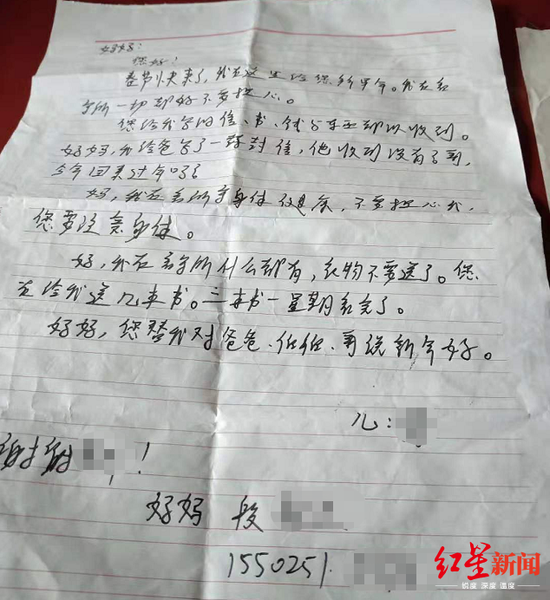 妈妈:
您好!
春节快来了,我在这里给您拜早年。我在看
守所一切都好不要担心。
您给我写的信、书、钱与东西都以收到。
妈妈,我给爸写了一封信,他收到没有了哥,
今年回来过年吗?
妈,我在看所身体健康,不要担心我,
您要注意身体。
妈,我在看守所什么都有,衣物不要送了。您
在给我送几本书。三本书一星期看完了。
妈妈,您替我对爸爸、伯伯、哥说新年好。
儿:
谢谢!
妈妈 段
1550251
红星新闻
锐度 深度 温度